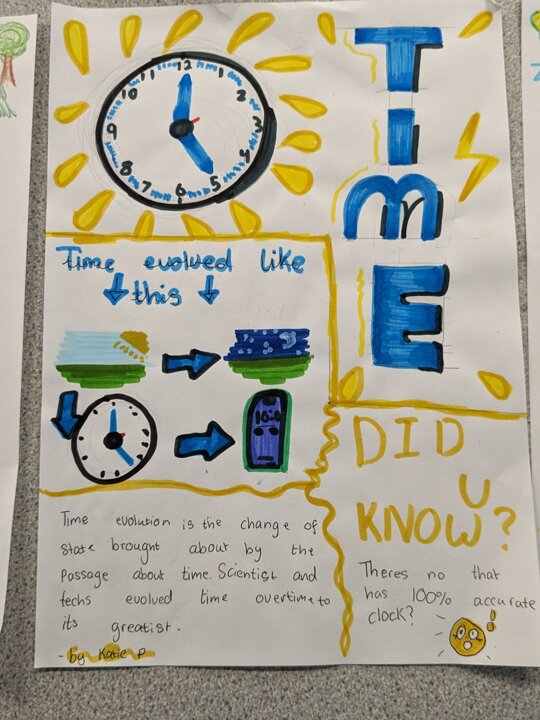 12
1
2
3
4
5
6
7
8
9
10
11
TIME
Time evolved like
this
DID
U
KNOW?
Time evolution is the change of
state brought about by the
Passage about time. Scientist and
techs evolved time overtime to
its greatist.
- by Katie P
Theres no that
has 100% accurate
clock?